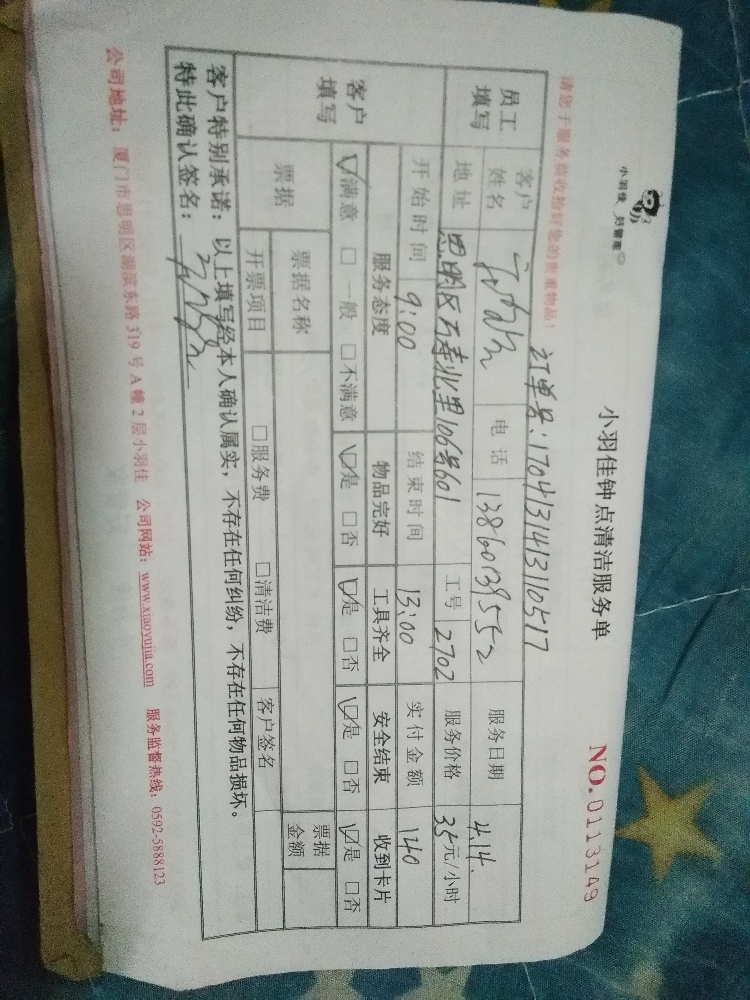 小羽佳，好管家
小羽佳钟点清洁服务单
NO.0113149
请您于服务前收拾好您的贵重物品！
订单号：17041314131 10517
员工填写
客户姓名 电话 13860139552 服务日期 4.14.
地址 思明区万寿北里106号601 工号 2702 服务价格 35元/小时
开始时间 9:00 结束时间 13:00 实付金额 140
客户填写
服务态度 物品完好 工具齐全 安全结束 收到卡片
☑满意 □一般 □不满意 ☑是 □否 ☑是 □否 ☑是 □否 ☑是 □否
票据 票据名称 票据金额
开票项目 □服务费 □清洁费 客户签名
客户特别承诺：以上填写经本人确认属实，不存在任何纠纷，不存在任何物品损坏。
特此确认签名：
公司地址：厦门市思明区湖滨东路319号A幢2层小羽佳 公司网站：www.xiaoyujia.com 服务监督热线：0592-5888123